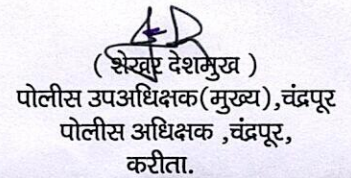 ( शेखर देशमुख )
पोलीस उपअधिक्षक(मुख्य),चंद्रपूर
पोलीस अधिक्षक ,चंद्रपूर,
करीता.